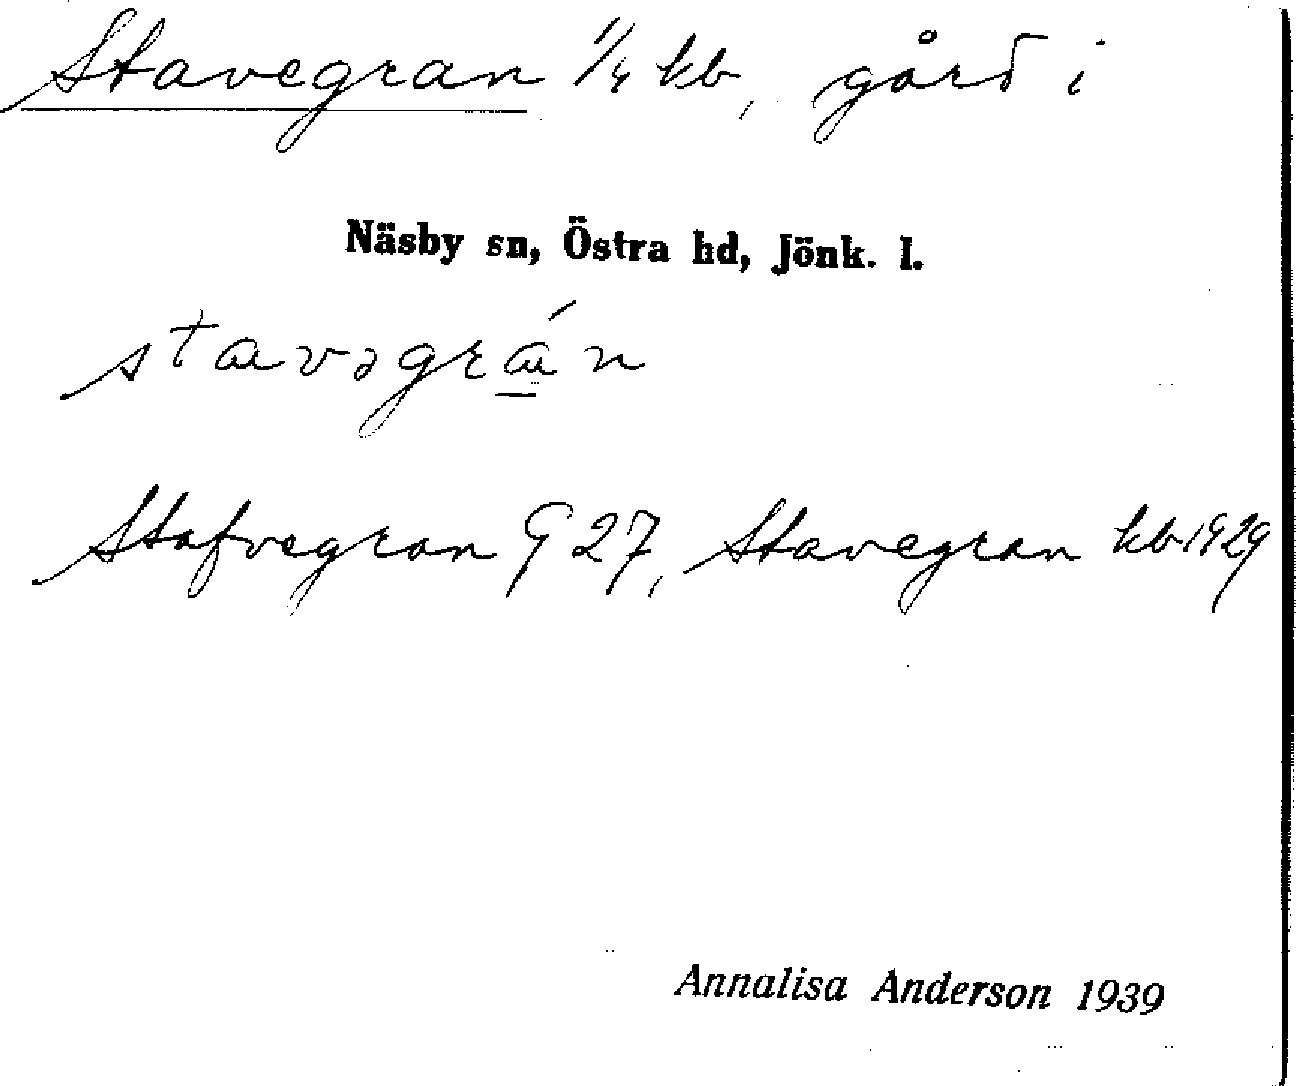 Stavegran 1/4 kb, gård i
Näsby sn, Östra hd, Jönk. l.
stavəgrá̱n
Stafvegran G 27, Stavegran kb 1929
Annalisa Anderson 1939